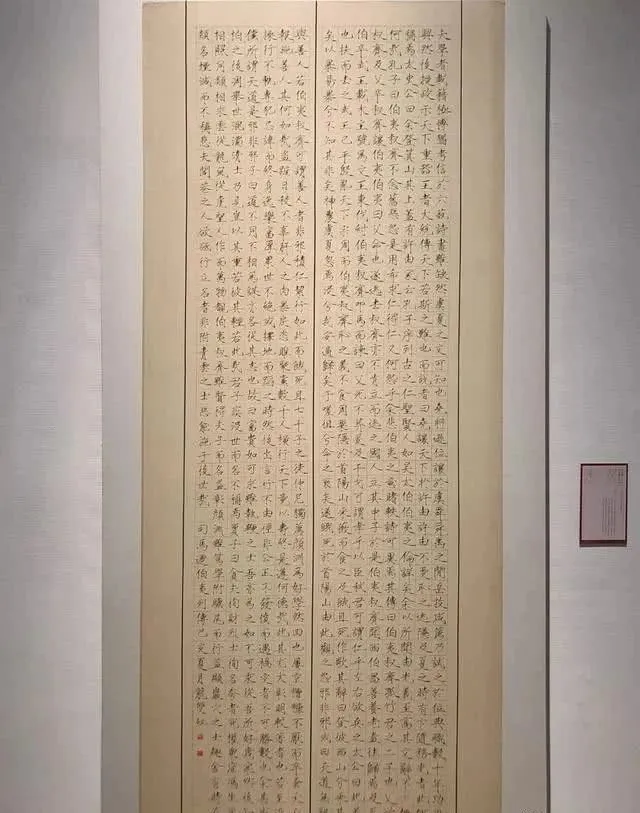 夫學者載籍極博猶考信於六蓺詩書雖缺然虞夏之文可知也堯將遜位讓於虞舜舜禹之間岳牧咸薦乃試之於位典職數十年功
興然後授政示天下重器王者大統傳天下若斯之難也而說者曰堯讓天下於許由許由不受恥之逃隱及夏之時有卞隨務光者此
稱焉太史公曰余登箕山其上蓋有許由冢云孔子序列古之仁聖賢人如吳太伯伯夷之倫詳矣余以所聞由光義至高其文辭不
何哉孔子曰伯夷叔齊不念舊惡怨是用希求仁得仁又何怨乎余悲伯夷之意睹軼詩可異焉其傳曰伯夷叔齊孤竹君之二子也父
叔齊及父卒叔齊讓伯夷伯夷曰父命也遂逃去叔齊亦不肯立而逃之國人立其中子於是伯夷叔齊聞西伯昌善養老盍往歸焉及
伯卒武王載木主號為文王東伐紂伯夷叔齊叩馬而諫曰父死不葬爰及干戈可謂孝乎以臣弒君可謂仁乎左右欲兵之太公曰此
也扶而去之武王已平殷亂天下宗周而伯夷叔齊恥之義不食周粟隱於首陽山采薇而食之及餓且死作歌其辭曰登彼西山兮采其
矣以暴易暴兮不知其非矣神農虞夏忽焉沒兮我安適歸矣于嗟徂兮命之衰矣遂餓死於首陽山由此觀之怨邪非邪或曰天道無親
與善人若伯夷叔齊可謂善人者非邪積仁絜行如此而餓死且七十子之徒仲尼獨薦顏淵為好學然回也屢空糟糠不厭而卒蚤夭
報施善人其何如哉盜蹠日殺不辜肝人之肉暴戾恣睢聚黨數千人橫行天下竟以壽終是遵何德哉此其尤大彰明較著者也若至
操行不軌專犯忌諱而終身逸樂富厚累世不絕或擇地而蹈之時然後出言行不由徑非公正不發憤而遇禍災者不可勝數也余甚
儻所謂天道是邪非邪子曰道不同不相為謀亦各從其志也故曰富貴如可求雖執鞭之士吾亦為之如不可求從吾所好歲寒然後
之後凋舉世混濁清士乃見豈以其重若彼其輕若此哉君子疾沒世而名不稱焉賈子曰貪夫徇財烈士徇名夸者死權眾庶馮生
相照同類相求雲從龍風從虎聖人作而萬物覩伯夷叔齊雖賢得夫子而名益彰顏淵雖篤學附驥尾而行益顯巖穴之士趣舍有時
類名堙滅而不稱悲夫閭巷之人欲砥行立名者非附青雲之士惡能施于後世哉 司馬遷伯夷列傳己亥夏月